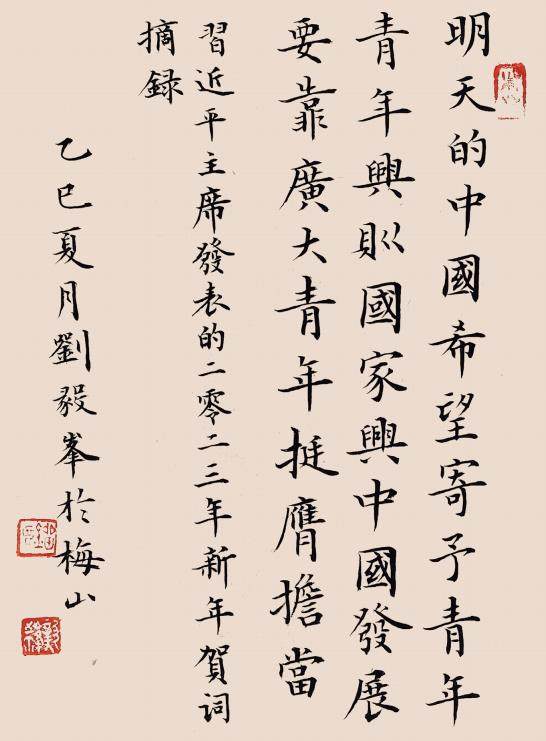 明天的中國希望寄予青年
青年興則國家興中國發展
要靠廣大青年挺膺擔當
習近平主席發表的二零二三年新年賀詞
摘録
乙巳夏月劉毅峯於梅山